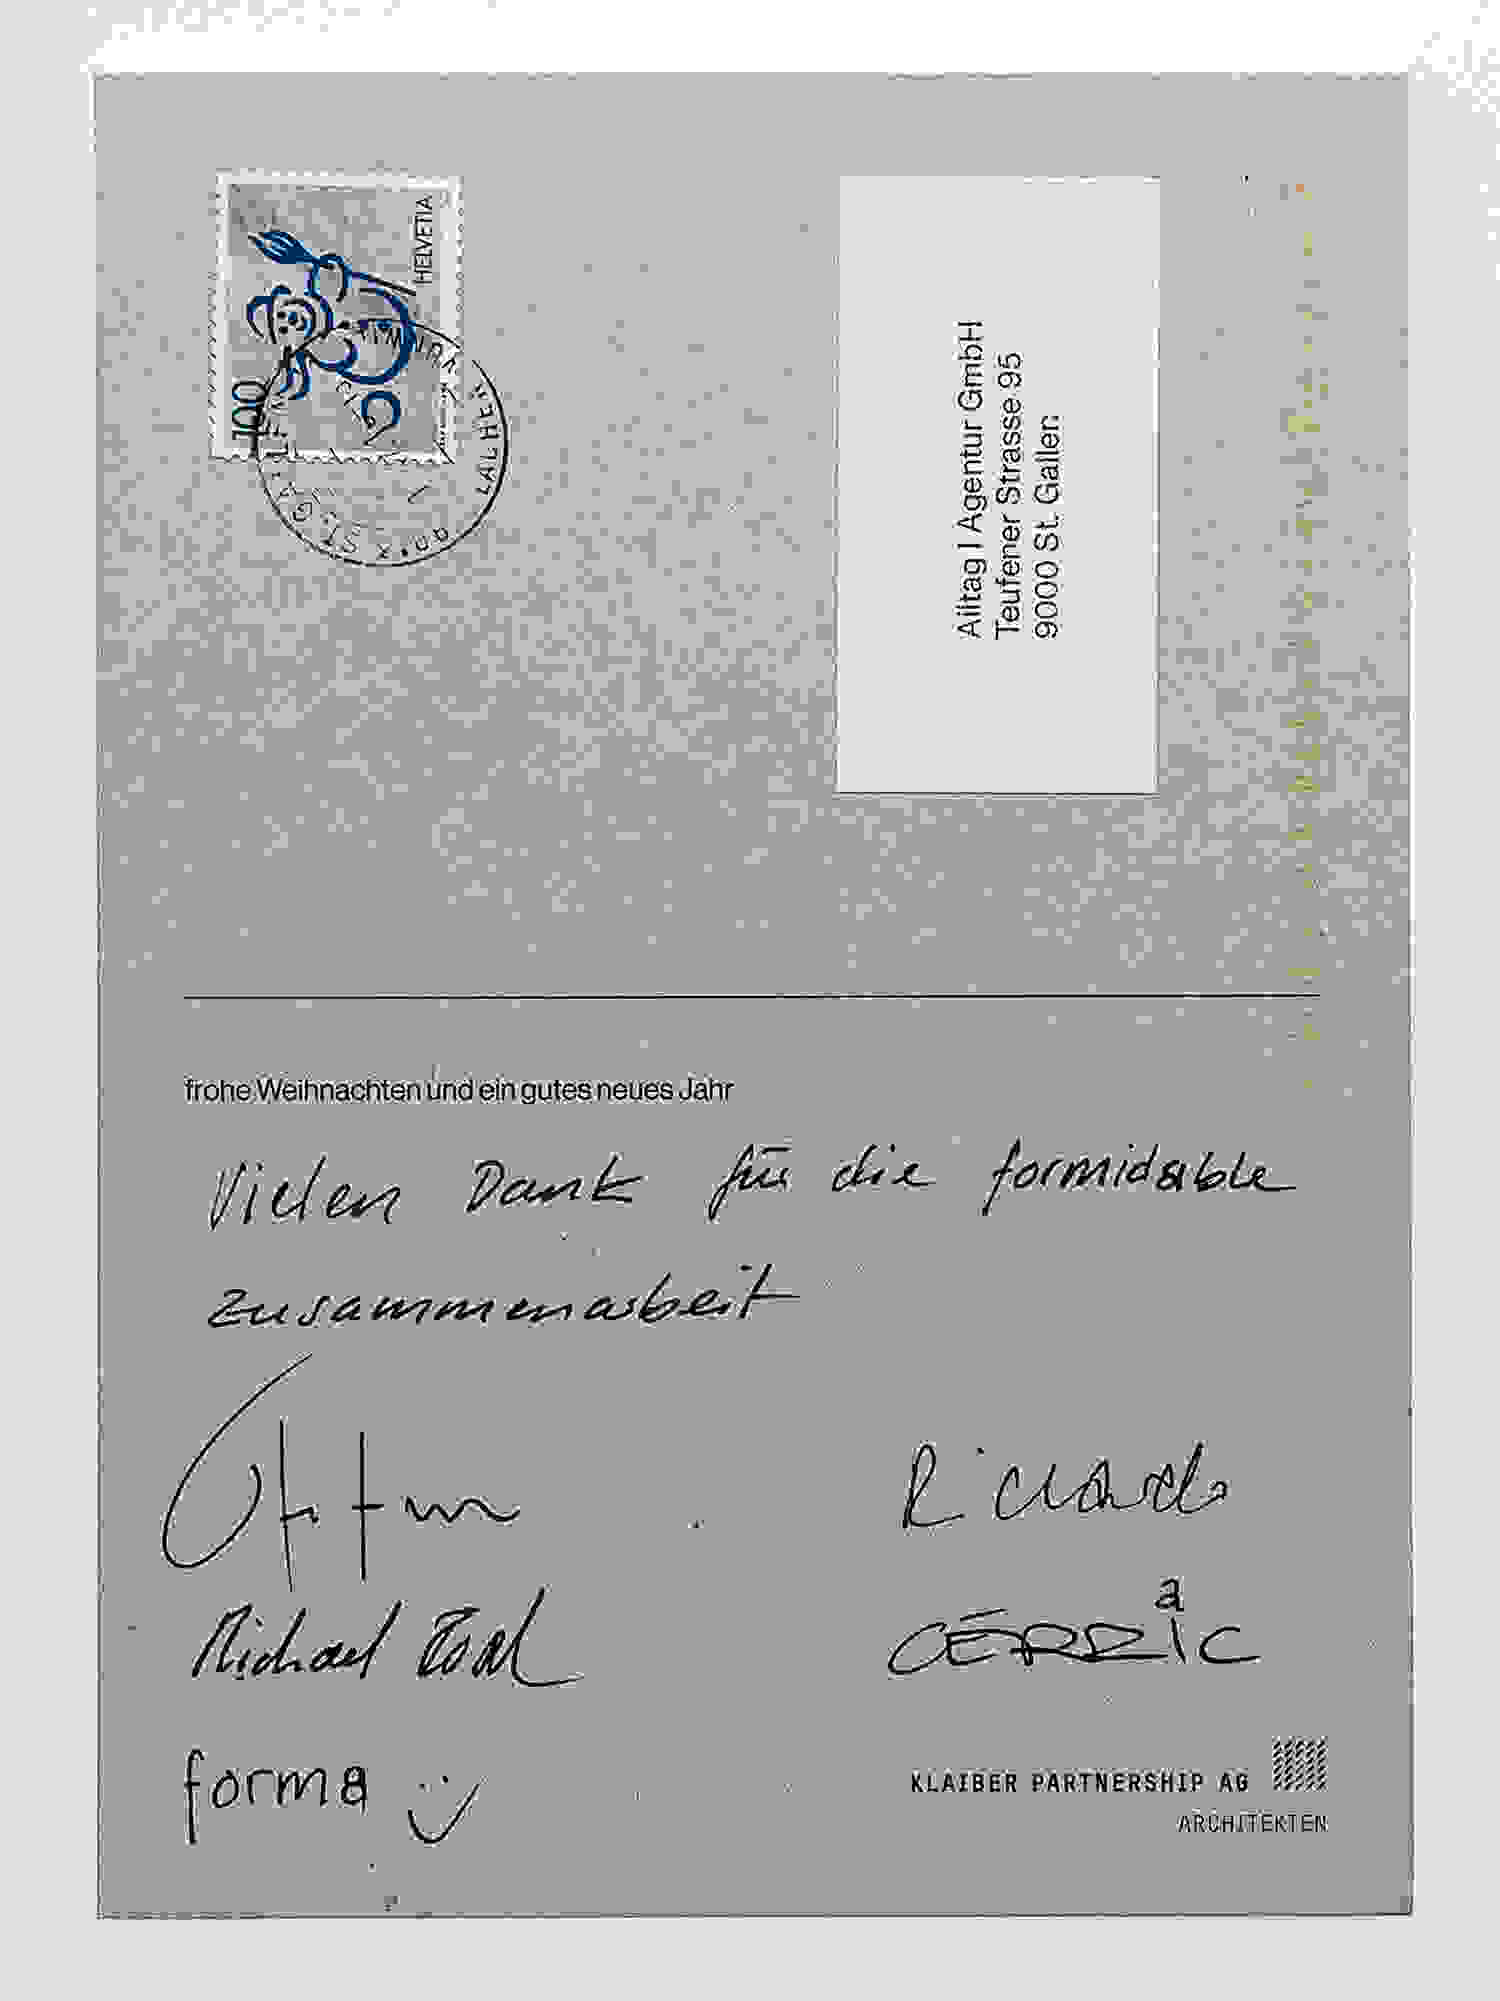 HELVETIA
100
Alltag | Agentur GmbH
Teufener Strasse 95
9000 St. Gallen
frohe Weihnachten und ein gutes neues Jahr
Vielen Dank für die formidable
Zusammenarbeit
Ricardo
Michael
forma
KLAIBER PARTNERSHIP AG
ARCHITEKTEN